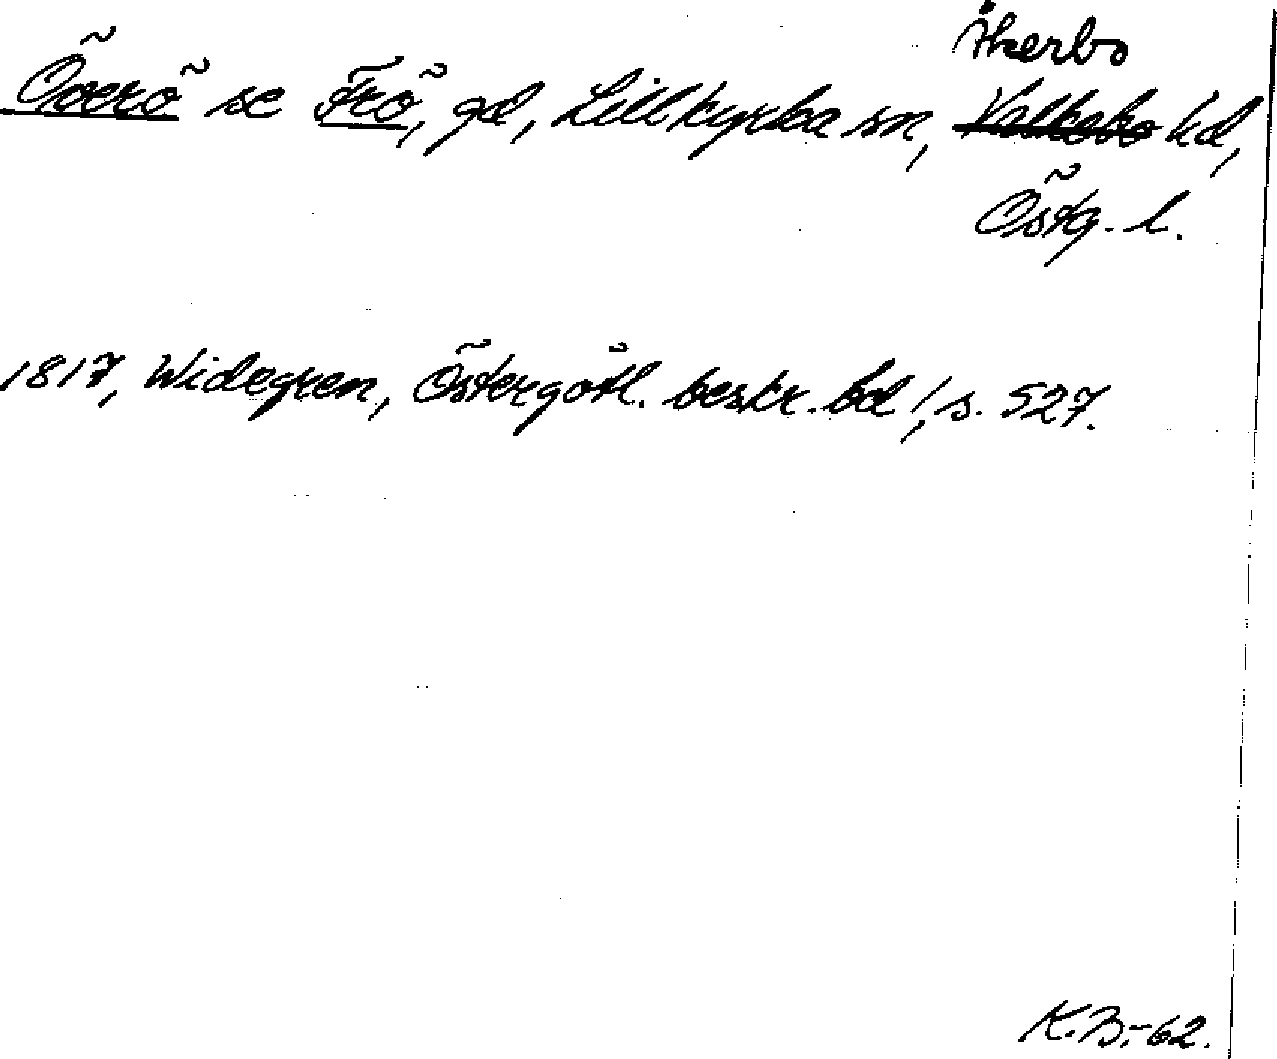 Åkerbo
Överö se Frö, gd, Lillkyrka sn, Valkebo hd,
Östg. l.
1817, Widegren, Östergötl. beskr. bd 1, s. 527.
K.B.-62.